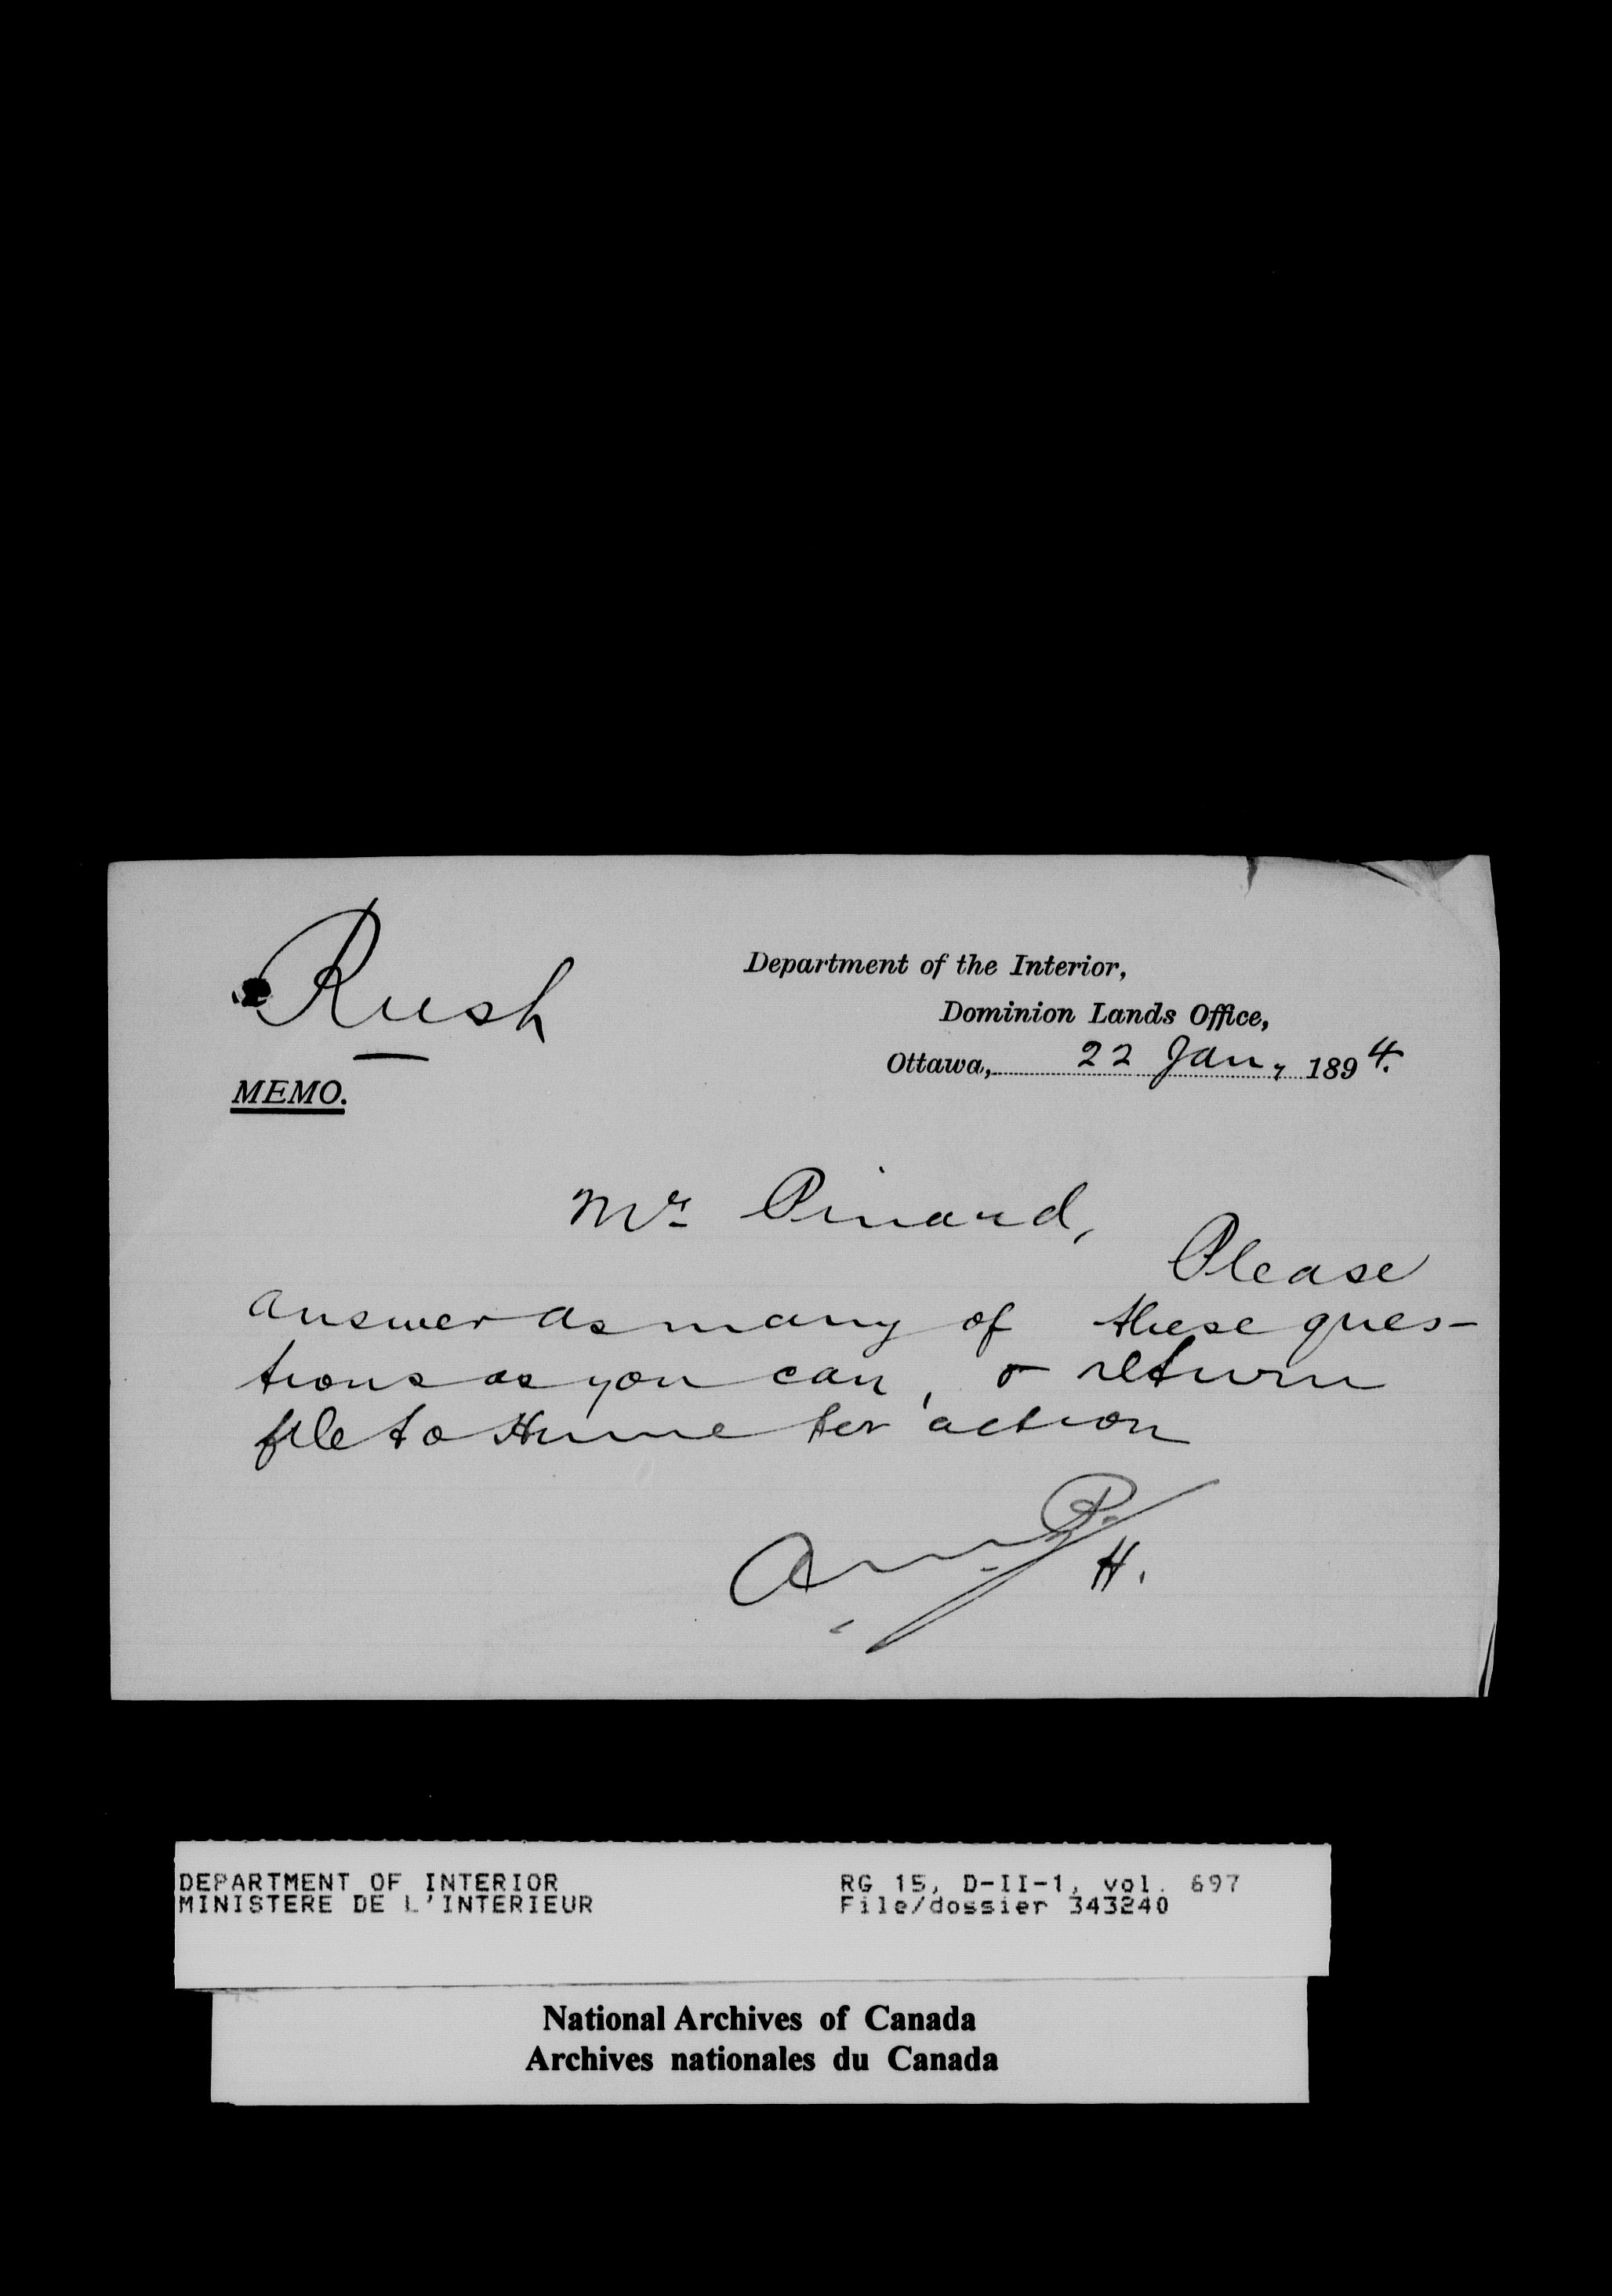 Rush
Department of the Interior,
Dominion Lands Office,
Ottawa, 22 Jan, 1894.
MEMO.
Mr Pinard,
Please
answer as many of these ques-
tions as you can, & return
file to Hume for action
H.
DEPARTMENT OF INTERIOR RG 15, D-II-1, vol. 697
MINISTERE DE L'INTERIEUR File/dossier 343240
National Archives of Canada
Archives nationales du Canada